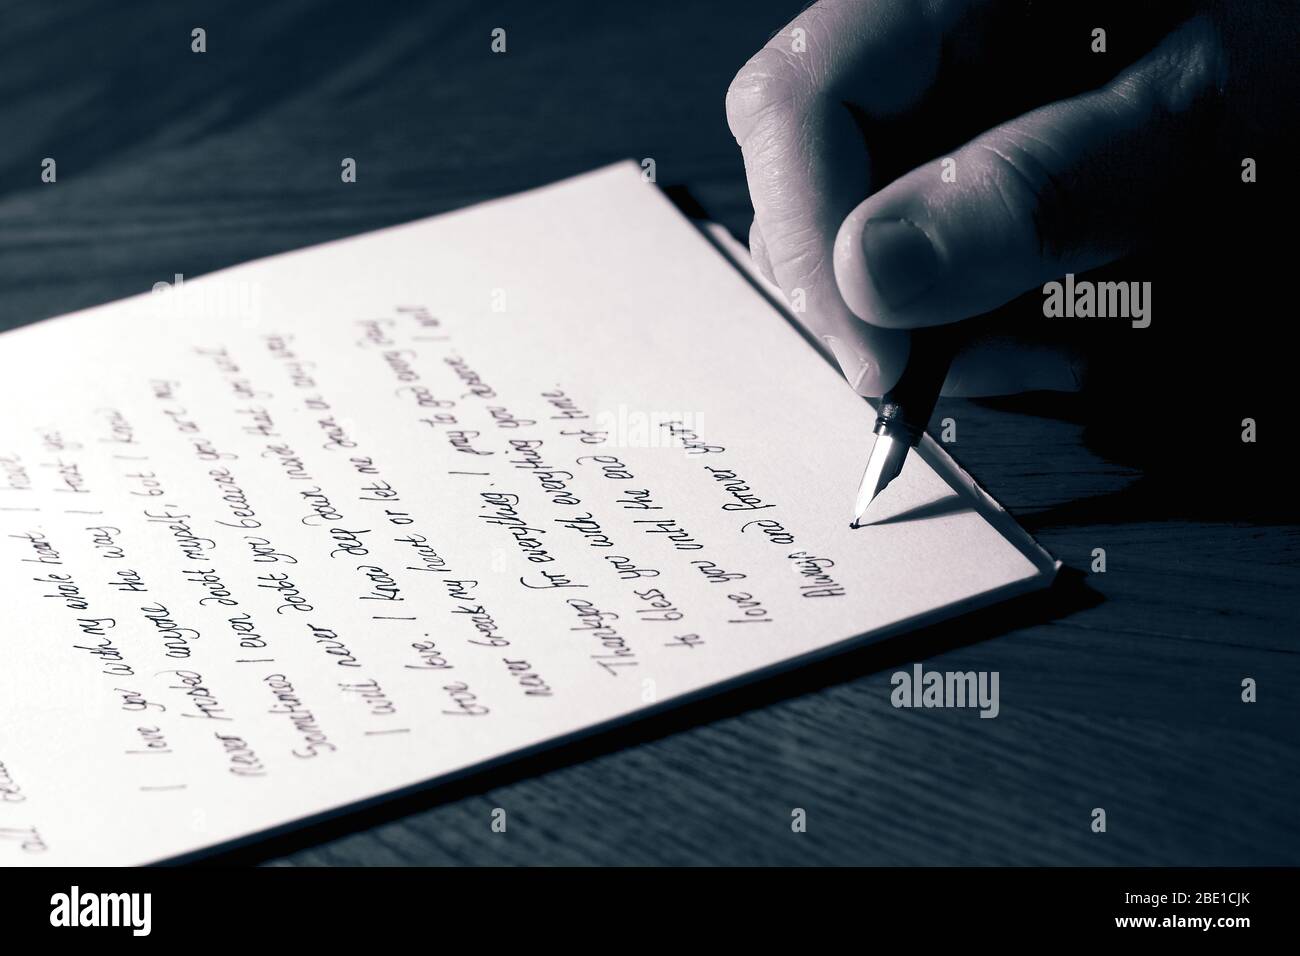 all
I love you with my whole heart. I have
never trusted anyone the way I trust you.
Sometimes I even doubt myself, but I know
I will never doubt you because you are my
true love. I know deep down inside that you will
never break my heart or let me down in any way.
Thankyou for everything. I pray to god every day
to bless you with everything you deserve. I will
love you until the end of time.
Always and forever yours
a
alamy
Image ID: 2BE1CJK
www.alamy.com